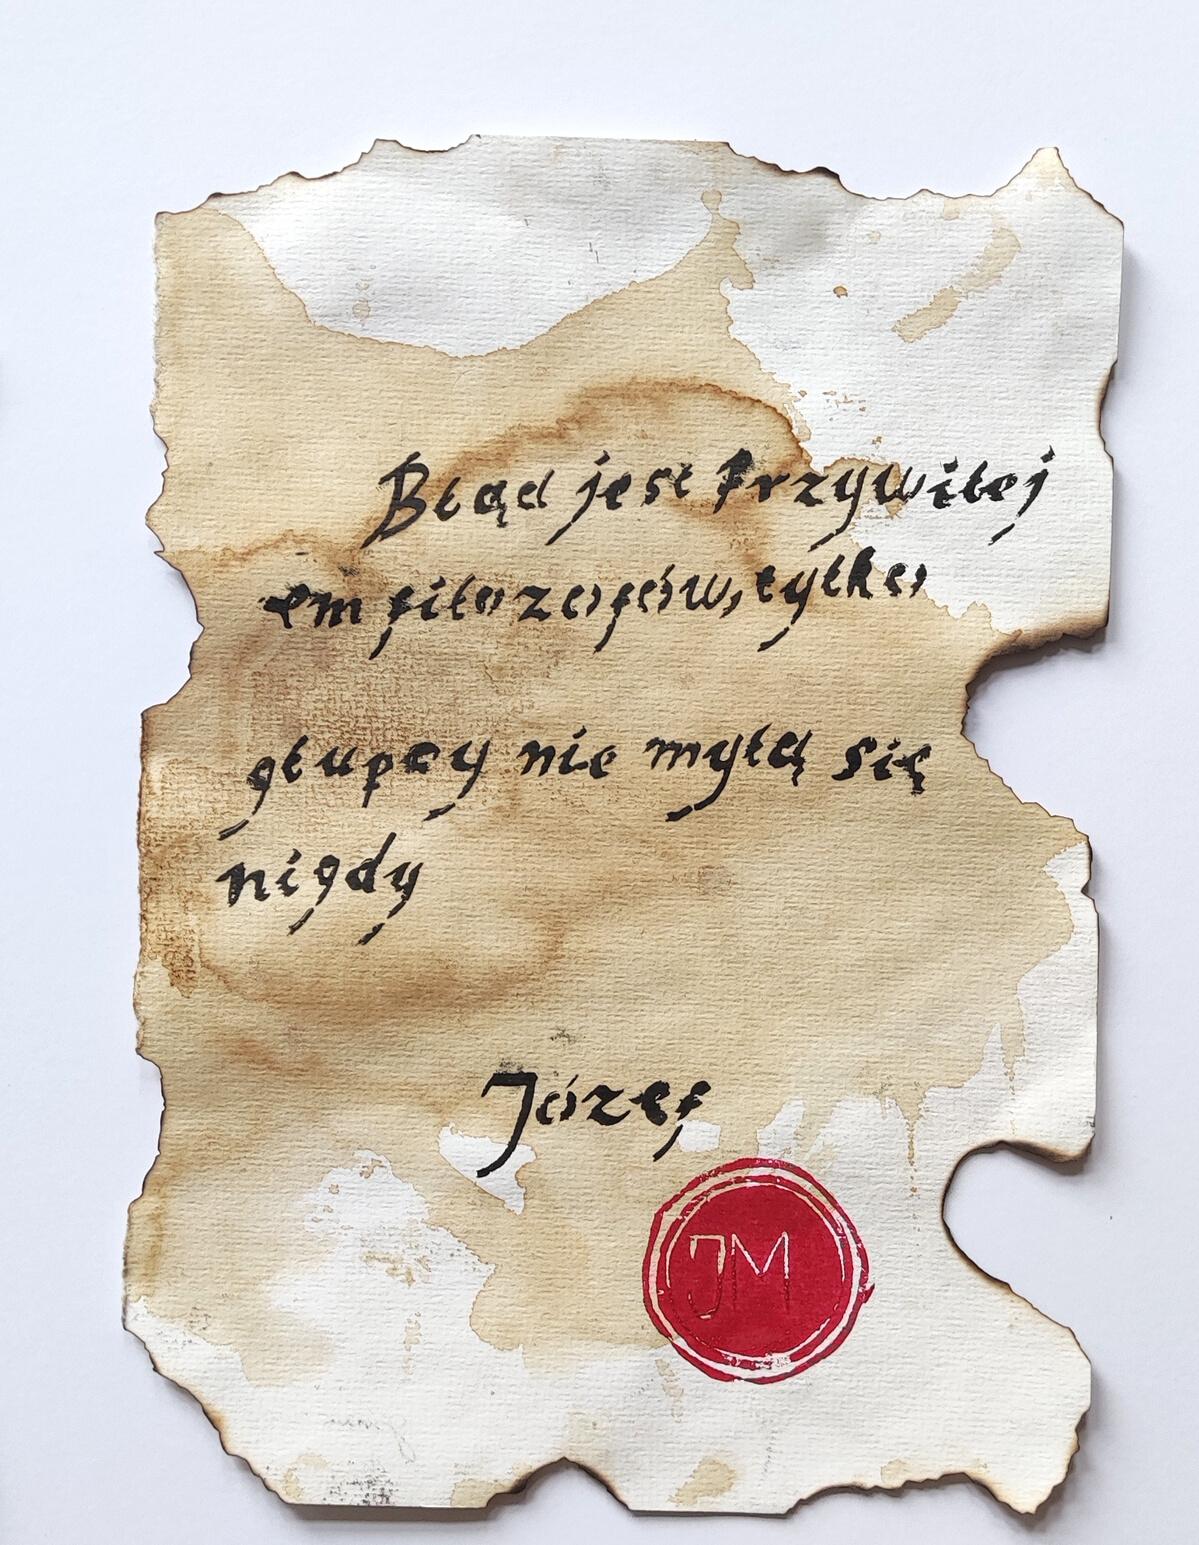 Błąd jest Przywilej
em filozofów, tylko
głupcy nie mylą się
nigdy
Józef
JM